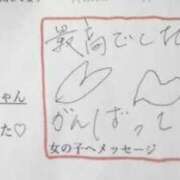 最高でした
ちゃん
た♡
がんばって
女の子へメッセージ